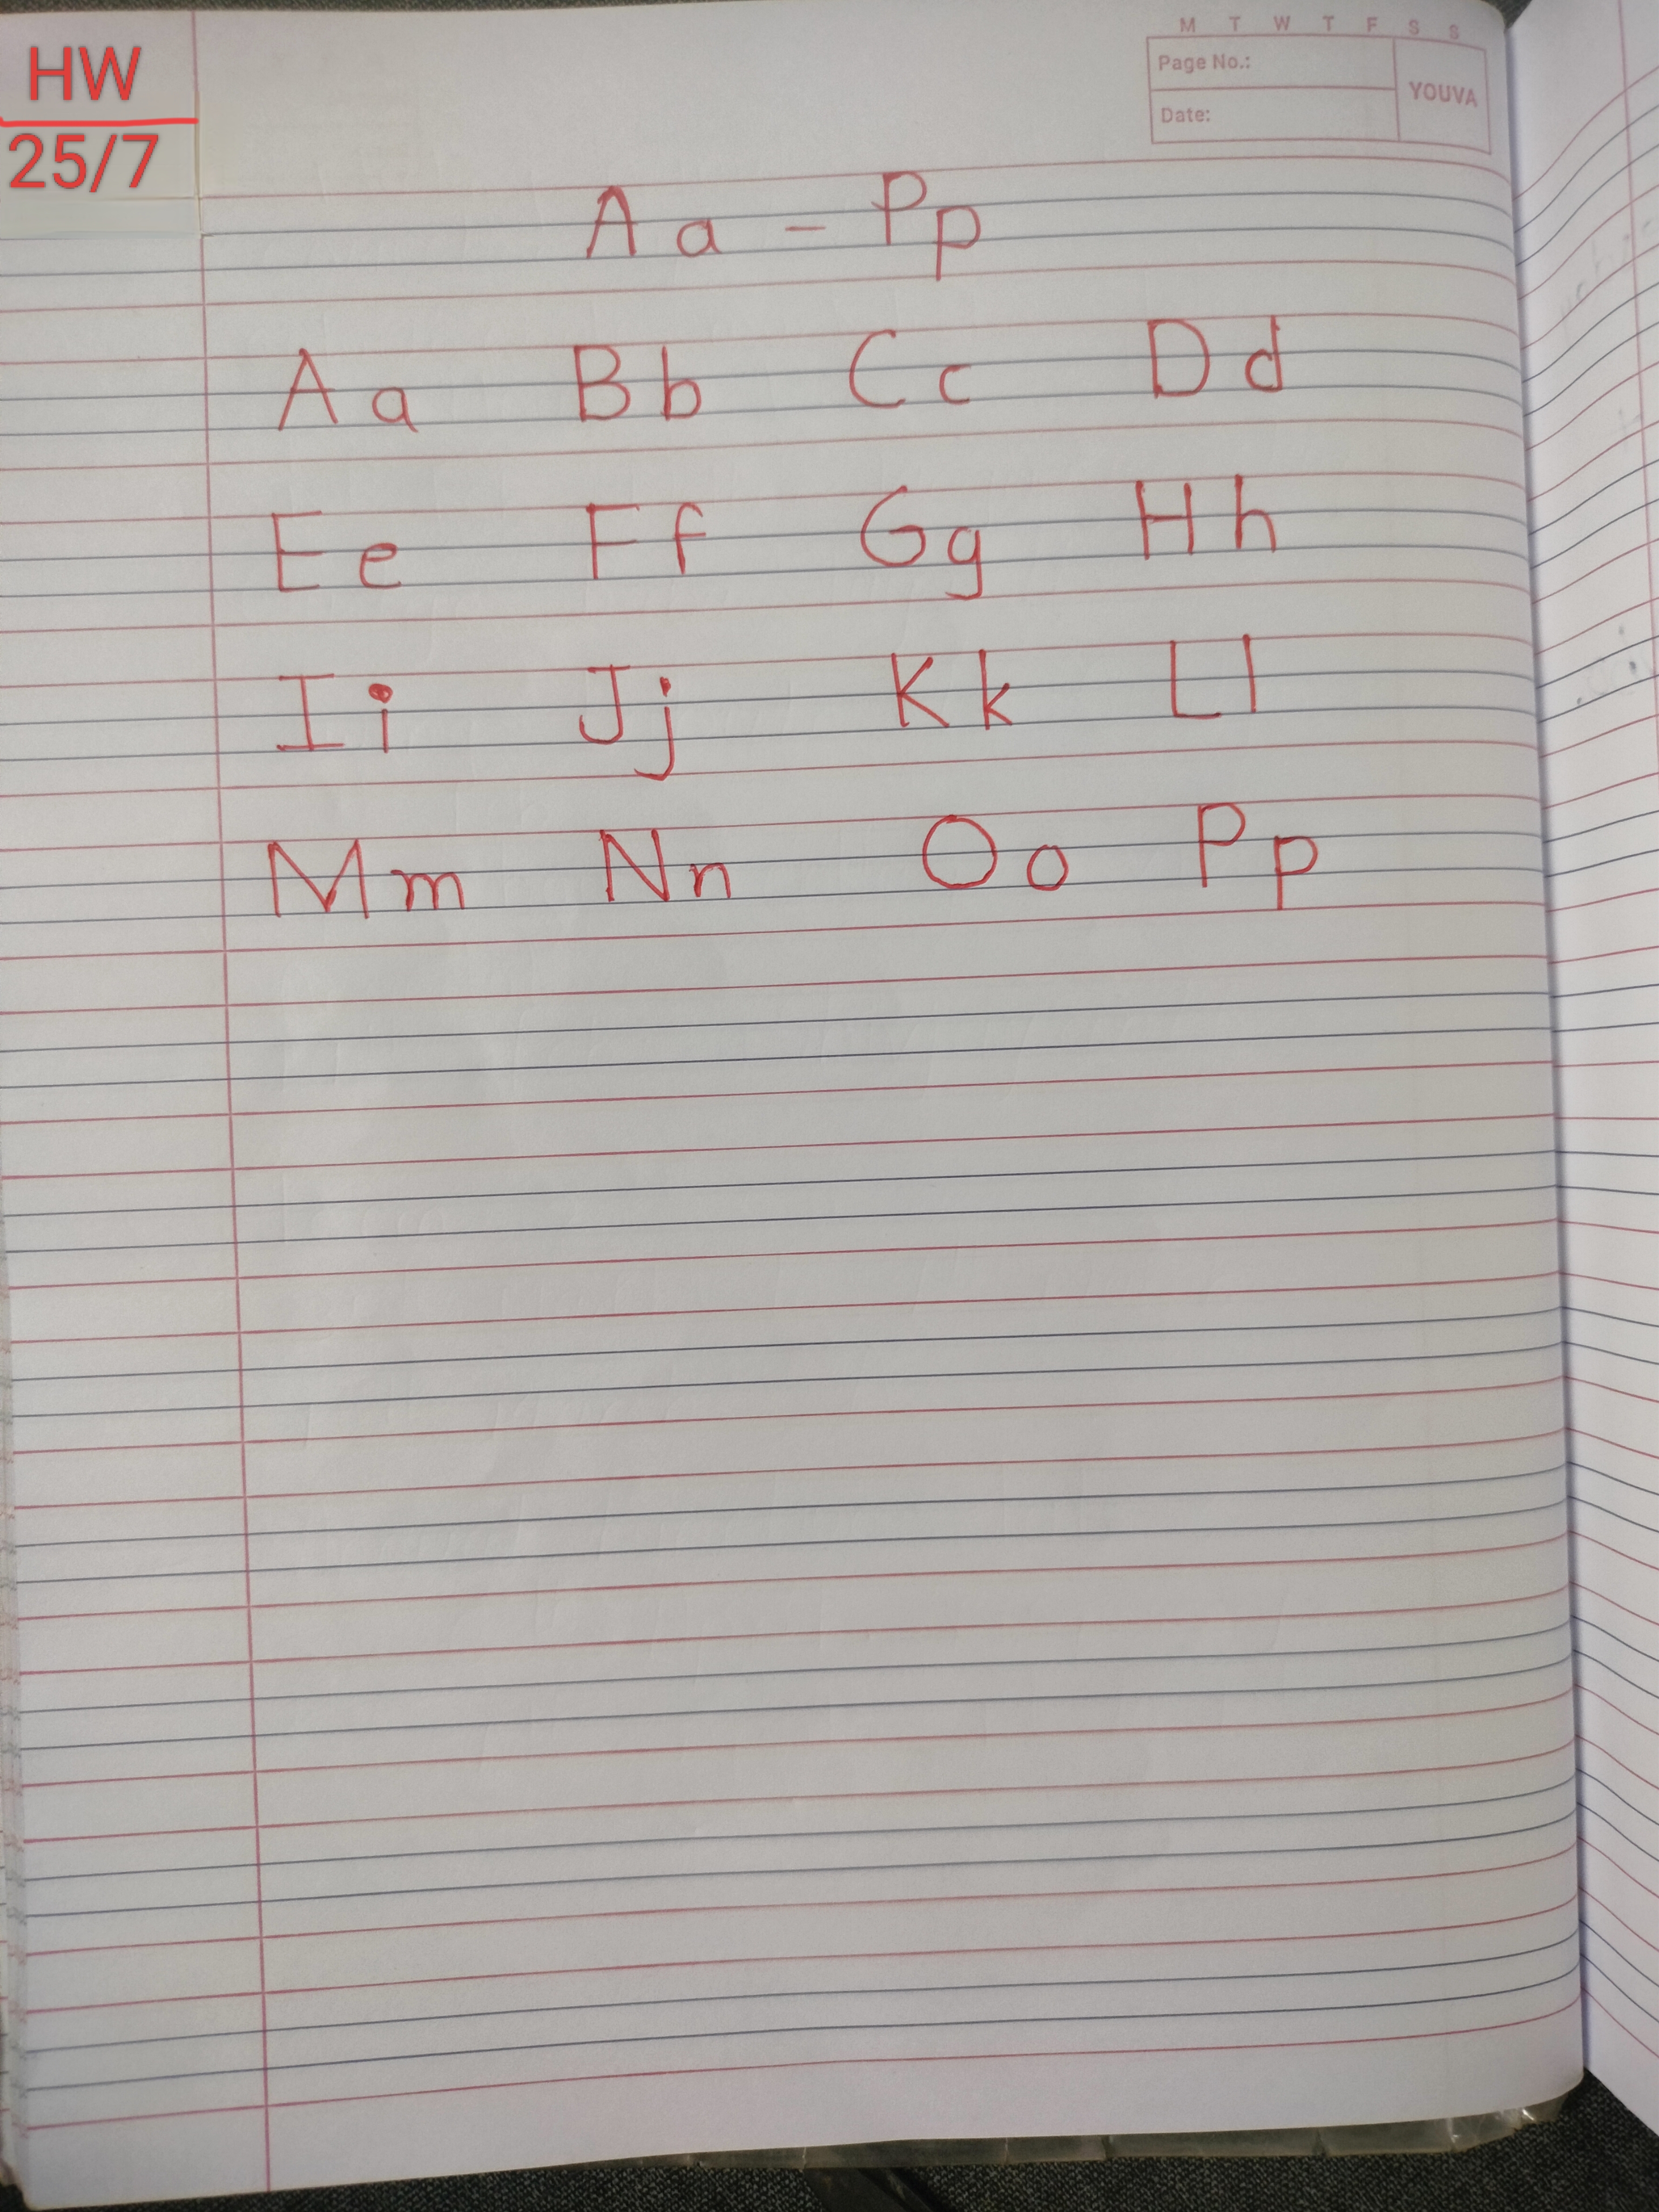 HW
25/7
M T W T F S S
Page No.:
YOUVA
Date:
Aa - Pp
Aa Bb Cc Dd
Ee Ff Gg Hh
Ii Jj Kk Ll
Mm Nn Oo Pp